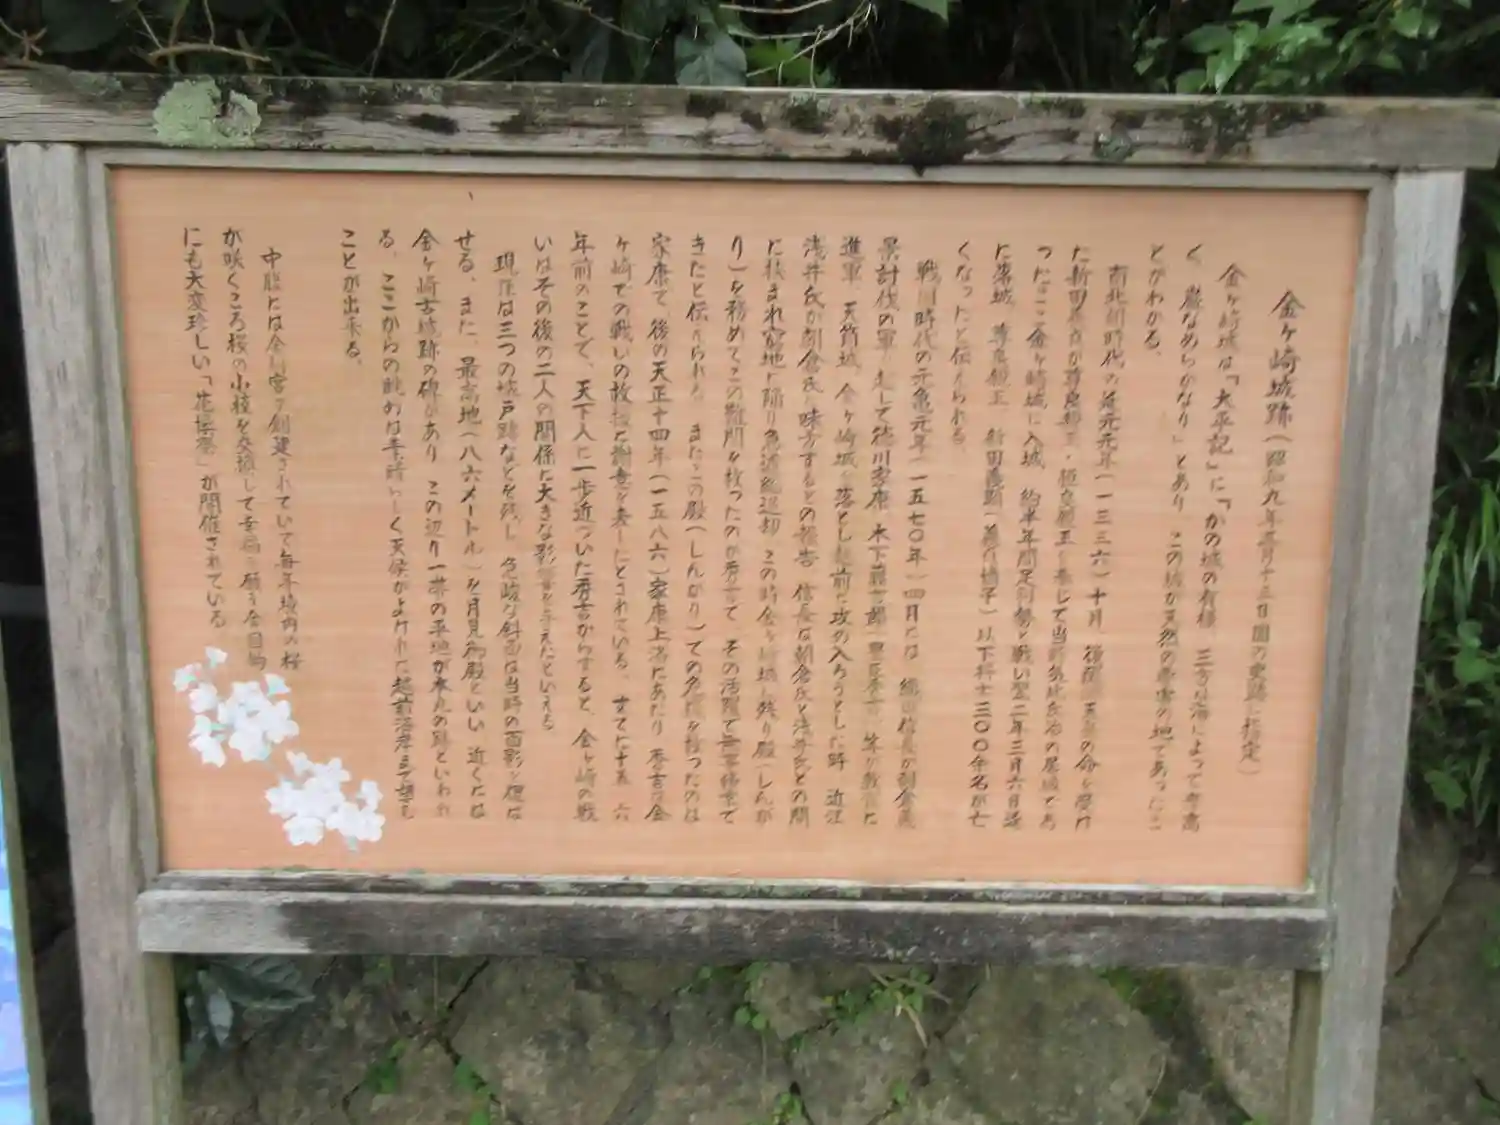 金ヶ崎城跡(昭和九年三月十三日国の史跡に指定)
金ヶ崎城は「太平記」に「かの城の有様、三方は海によって岸高
く、巌なめらかなり」とあり、この城が天然の要害の地であったこ
とがわかる。
南北朝時代の延元元年(一三三六)十月、後醍醐天皇の命を受け
た新田義貞が尊良親王・恒良親王を奉じて当時気比氏治の居城であ
ったここ金ヶ崎城に入城、約半年間足利勢と戦い翌二年三月六日遂
に落城、尊良親王、新田義顕(義貞嫡子)以下将士三〇〇余名が亡
くなったと伝えられる。
戦国時代の元亀元年(一五七〇年)四月には、織田信長が朝倉義
景討伐の軍を起して徳川家康、木下藤吉郎(豊臣秀吉)等が敦賀に
進軍、天筒城、金ヶ崎城を落とし越前に攻め入ろうとした時、近江
浅井氏が朝倉氏に味方するとの報告、信長は朝倉氏と浅井氏との間
に挟まれ窮地に陥り急遽総退却、この時金ヶ崎城に残り殿(しんが
り)を務めてこの難関を救ったのが秀吉で、その活躍で無事帰京で
きたと伝えられる。またこの殿(しんがり)での危機を救ったのは
家康で、後の天正十四年(一五八六)家康上洛にあたり、秀吉は金
ヶ崎での戦いの救援に謝意を表したとされている。すでに十五、六
年前のことで、天下人に一歩近づいた秀吉からすると、金ヶ崎の戦
いはその後の二人の関係に大きな影響を与えたといえる
現在は三つの城戸跡などを残し、急峻な斜面は当時の面影を偲ば
せる。また、最高地(八六メートル)を月見御殿といい、近くには
金ヶ崎古城跡の碑があり、この辺り一帯の平地が本丸の跡といわれ
る。ここからの眺めは素晴らしく天候がよければ越前海岸まで望む
ことが出来る。
中腹には金崎宮が創建されていて毎年境内の桜
が咲くころ桜の小枝を交換して幸福を願う全国的
にも大変珍しい「花換祭」が開催されている